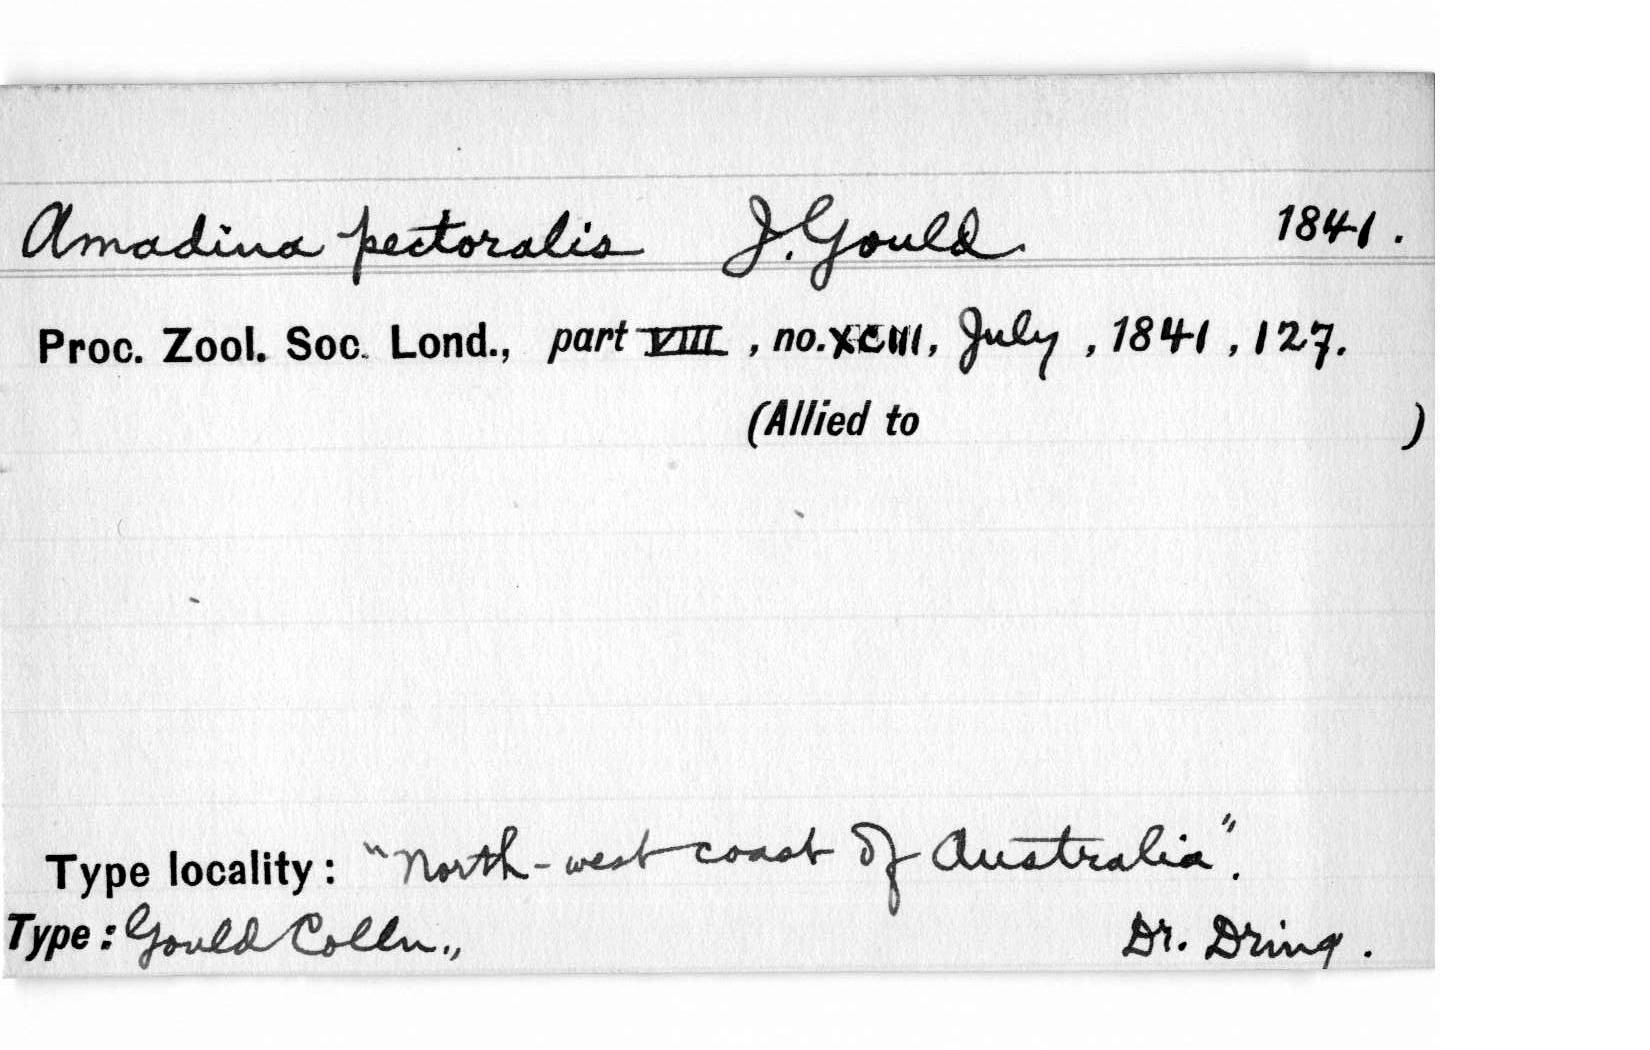 Amadina pectoralis J. Gould. 1841.
Proc. Zool. Soc. Lond., part VIII, no. XCIII, July, 1841, 127.
(Allied to )
Type locality: "North-west coast of Australia".
Type: Gould Colln., Dr. Dring.